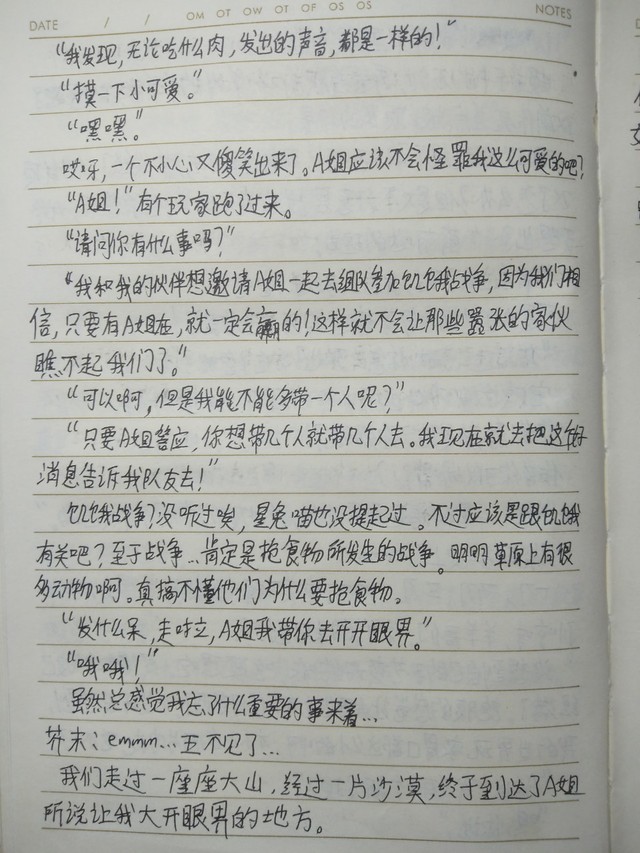 DATE / / OM OT OW OT OF OS OS NOTES
“我发现,无论吃什么肉,发出的声音,都是一样的!”
“摸一下小可爱。”
“嘿嘿。”
哎呀,一个不小心又傻笑出来了。A姐应该不会怪罪我这么可爱的吧?
“A姐!”有个玩家跑了过来。
“请问你有什么事吗?”
“我和我的伙伴想邀请A姐一起去组队参加饥饿战争,因为我们相
信,只要有A姐在,就一定会赢的!这样就不会让那些嚣张的家伙
瞧不起我们了。”
“可以啊,但是我能不能多带一个人呢?”
“只要A姐答应,你想带几个人就带几个人去。我现在就去把这个好
消息告诉我队友去!”
饥饿战争?没听过唉,星兔喵也没提起过。不过应该是跟饥饿
有关吧?至于战争…肯定是抢食物所发生的战争。明明草原上有很
多动物啊。真搞不懂他们为什么要抢食物。
“发什么呆,走吋立,A姐我带你去开开眼界。”
“哦哦!”
虽然总感觉我忘了什么重要的事来着…
芥末:emmm…五不见了…
我们走过一座座大山,经过一片沙漠,终于到达了A姐
所说让我大开眼界的地方。